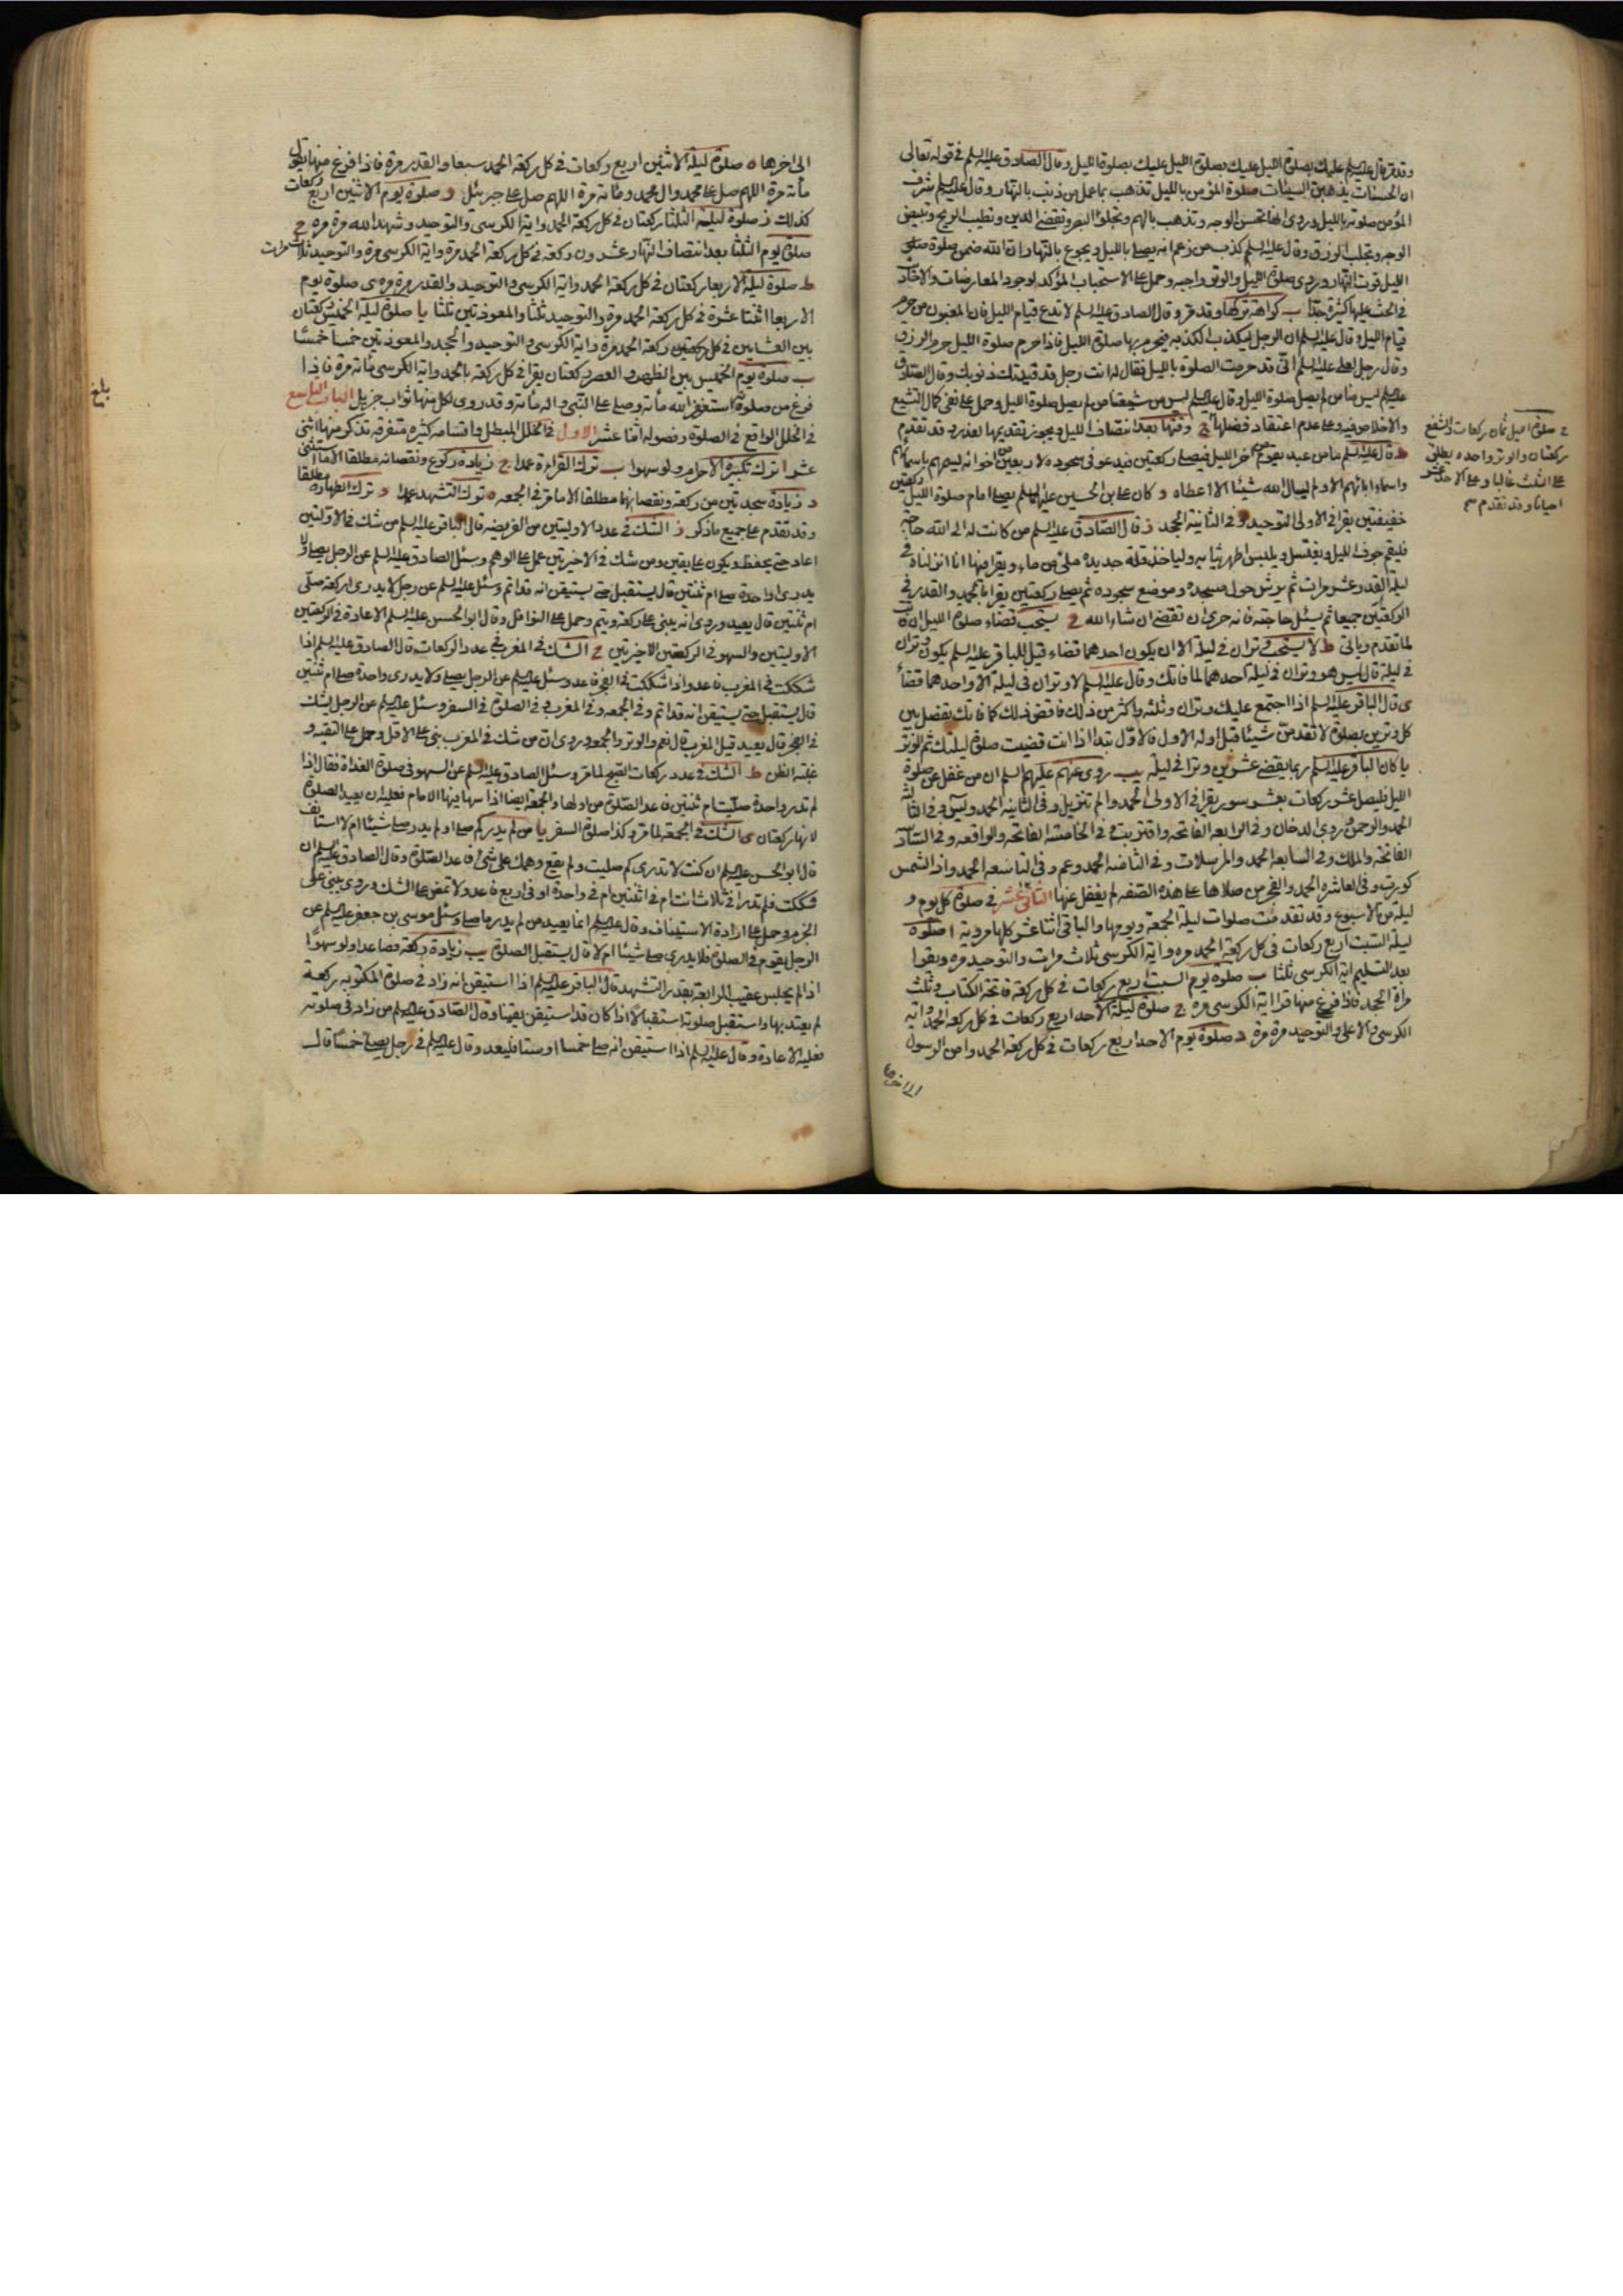 وقد مر قال عليه السلم عليك بصلوة الليل عليك بصلوة الليل عليك بصلوة الليل وقال الصادق عليه السلم في قوله تعالى
ان الحسنات يذهبن السيئات صلوة المؤمن بالليل تذهب بما عمل من ذنب بالنهار وقال عليه السلم شرف
المؤمن صلوته بالليل وروى انها تحسن الوجه وتذهب بالهم وتجلو البصر وتقضى الدين وتطيب الريح وتبيض
الوجه وتجلب الرزق وقال عليه السلم كذب من زعم انه يصلى بالليل ويجوع بالنهار ان الله ضمن صلوة
الليل قوت النهار وروى صلوة الليل والوتر واجبه وحمل على الاستحباب المؤكد لوجود المعارضات والاخبار
في الحث عليها كثيرة جدا ب كراهة تركها وقد مر وقال الصادق عليه السلم لا تدع قيام الليل فان المغبون من حرم
قيام الليل وقال عليه السلم ان الرجل ليكذب الكذبه فيحرم بها صلوة الليل فاذا حرم صلوة الليل حرم الرزق
وقال رجل لعلى عليه السلم انى قد حرمت الصلوة بالليل فقال له انت رجل قد قيدتك ذنوبك وقال الصادق
عليه السلم ليس منا من لم يصل صلوة الليل وقال عليه السلم ليس من شيعتنا من لم يصل صلوة الليل وحمل على نفى كمال التشيع
والاخلاص فيه وعلى عدم اعتقاد فضلها ج وقتها بعد انتصاف الليل ويجوز تقديمها لعذر د وقد تقدم
ه قال عليه السلم ما من عبد يقوم من آخر الليل فيصلى ركعتين فيدعو في سجوده لاربعين من اخوانه يسميهم باسمائهم
واسماء ابائهم الا ولم يسال الله شيئا الا اعطاه و كان على بن الحسين عليه السلم يصلى امام صلوة الليل ركعتين
خفيفتين يقرا في الاولى التوحيد وفي الثانية الجحد ز قال الصادق عليه السلم من كانت له الى الله حاجة
فليقم جوف الليل ويغتسل ويلبس اطهر ثيابه ولياخذ قلة جديدة ملئى من ماء ويقرا فيها انا انزلناه في
ليلة القدر عشر مرات ثم يرش حول مسجده وموضع سجوده ثم يصلى ركعتين يقرا بالحمد والقدر في
الركعتين جميعا ثم يسئل حاجته فانه حرى ان تقضى ان شاء الله ح يستحب قضاء صلوة الليل ان فاتت
لما تقدم وياتى ط لا يستحب وتران في ليلة الا ان يكون احدهما قضاء قيل للباقر عليه السلم يكون وتران
في ليلة قال ليس هو وتران في ليلة احدهما لما فاتك وقال عليه السلم لا وتران في ليلة الا واحدهما قضاء
ى قال الباقر عليه السلم اذا اجتمع عليك وتران وثلثه واكثر من ذلك فاقض ذلك كما فاتك تفصل بين
كل وترين بصلوة لا تقدمن شيئا قبل اوله الاول فالاول تبدا اذا انت قضيت صلوة ليلتك ثم الوتر
يا كان الباقر عليه السلم ربما يقضى عشرين وترا في ليلة يب روى عنهم عليهم السلم ان من غفل عن صلوة
الليل فليصل عشر ركعات بعشر سور يقرا في الاولى الحمد والم تنزيل وفي الثانية الحمد ويس وفي الثالثة
الحمد والرحمن وروى الدخان وفي الرابعه الفاتحه واقتربت وفي الخامسه الفاتحه والواقعه وفي السادسة
الفاتحه والملك وفي السابعه الحمد والمرسلات وفي الثامنه الحمد وعم وفي التاسعه الحمد واذا الشمس
كورت وفي العاشره الحمد والفجر من صلاها على هذه الصفه لم يغفل عنها الثانى عشر في صلوة كل يوم و
ليلة من الاسبوع وقد تقدمت صلوات ليلة الجمعة ويومها والباقى اثنا عشر كلها مروية ا صلوة
ليلة السبت اربع ركعات في كل ركعة الحمد مره واية الكرسى ثلاث مرات والتوحيد مره ويقرا
بعد التسليم اية الكرسى ثلثا ب صلوه يوم السبت اربع ركعات في كل ركعة فاتحة الكتاب وثلث
مراة الجحد فاذا فرغ منها قرا اية الكرسى مره ج صلوة ليلة الاحد اربع ركعات في كل ركعه الحمد واية
الكرسى والاعلى والتوحيد مرة مرة د صلوة يوم الاحد اربع ركعات في كل ركعة الحمد وامن الرسول
الى اخرها
ح صلوة الليل ثمان ركعات والشفع
ركعتان والوتر واحده ويطلق
على الثلث غالبا وعلى الاحد عشر
احيانا وقد تقدم
الى اخرها ه صلوة ليلة الاثنين اربع ركعات في كل ركعة الحمد سبعا والقدر مرة فاذا فرغ منها يقول
مأته مرة اللهم صل على محمد وال محمد ومأته مرة اللهم صل على جبرئل و صلوة يوم الاثنين اربع ركعات
كذلك ز صلوة ليلة الثلثا ركعتان في كل ركعة الحمد واية الكرسى والتوحيد وشهد الله مرة مره ح
صلوة يوم الثلثا بعد انتصاف النهار عشرون ركعة في كل ركعة الحمد مرة واية الكرسى مرة والتوحيد ثلاث مرات
ط صلوة ليلة الاربعا ركعتان في كل ركعة الحمد واية الكرسى والتوحيد والقدر مرة مره ى صلوة يوم
الاربعا اثنتا عشرة في كل ركعة الحمد مرة والتوحيد ثلثا والمعوذتين ثلثا يا صلوة ليلة الخميس ركعتان
بين العشايين في كل ركعة الحمد مرة واية الكرسى والتوحيد والجحد والمعوذتين خمسا خمسا
يب صلوة يوم الخميس بين الظهر والعصر ركعتان يقرا في كل ركعة بالحمد واية الكرسى مأته مرة فاذا
فرغ من صلوته استغفر الله مأته وصلى على النبى واله مأته وقد روى لكل منها ثواب جزيل الباب التاسع
في الخلل الواقع في الصلوة وفصوله اثنا عشر الاول في الخلل المبطل واقسامه كثيره متفرقه نذكر منها اثنى
عشر ا ترك تكبيرة الاحرام ولو سهوا ب ترك القراءة عمدا ج زيادة ركوع ونقصانه مطلقا الا ما استثنى
د زيادة سجدتين من ركعة ونقصانهما مطلقا الا ما مر في الجمعه ه ترك التشهد عمدا و ترك الطهارة مطلقا
وقد تقدم على جميع ما ذكر ز الشك في عدد الاوليتين من الفريضه قال الباقر عليه السلم من شك في الاوليتين
اعاد حتى يحفظ ويكون على يقين ومن شك في الاخيرتين عمل على الوهم وسئل الصادق عليه السلم عن الرجل يصلى ولا
يدرى واحدة صلى ام ثنتين قال يستقبل حتى يستيقن انه قد اتم وسئل عليه السلم عن رجل لا يدرى اركعة صلى
ام ثنتين قال يعيد وروى انه يبنى على ركعة ويتم وحمل على النوافل وقال ابو الحسن عليه السلم الاعادة في الركعتين
الاوليتين والسهو في الركعتين الاخيرتين ح الشك في المغرب في عدد الركعات قال الصادق عليه السلم اذا
شككت في المغرب فاعد واذا شككت في الفجر فاعد وسئل عليه السلم عن الرجل يصلى ولا يدرى واحدة صلى ام ثنتين
قال يستقبل حتى يستيقن انه قد اتم وفي الجمعه وفي المغرب وفي الصلوة في السفر وسئل عليه السلم عن الرجل يشك
في الفجر قال يعيد قيل المغرب قال نعم والوتر والجمعه وروى ان من شك في المغرب بنى على الاقل وحمل على التقيه و
غلبة الظن ط الشك في عدد ركعات الصبح لما مر وسئل الصادق عليه السلم عن السهو في صلوة الغداة فقال اذا
لم تدر واحدة صليت ام ثنتين فاعد الصلوة من اولها والجمعة ايضا اذا سها فيها الامام فعليه ان يعيد الصلوة
لانها ركعتان ى الشك في الجمعة لما مر وكذا صلوة السفر يا من لم يدر كم صلى او لم يدر صلى شيئا ام لا استانف
قال ابو الحسن عليه السلم ان كنت لا تدرى كم صليت ولم يقع وهمك على شئ فاعد الصلوة وقال الصادق عليه السلم ان
شككت فلم تدر افي ثلاث انت ام في اثنتين ام في واحدة او في اربع فاعد ولا تمض على الشك وروى يبنى على
الجزم وحمل على ارادة الاستيناف وقال عليه السلم انما يعيد من لم يدر ما صلى وسئل موسى بن جعفر عليه السلم عن
الرجل يقوم في الصلوة فلا يدرى صلى شيئا ام لا قال يستقبل الصلوة يب زيادة ركعة فصاعدا ولو سهوا
اذا لم يجلس عقيب الرابعة بقدر التشهد قال الباقر عليه السلم اذا استيقن انه زاد في صلوة المكتوبه ركعة
لم يعتد بها واستقبل صلوته استقبالا اذا كان قد استيقن يقينا وقال الصادق عليه السلم من زاد في صلوته
فعليه الاعادة وقال عليه السلم اذا استيقن انه صلى خمسا او ستا فليعد وقال عليه السلم في رجل يصلى خمسا قال
بلغ